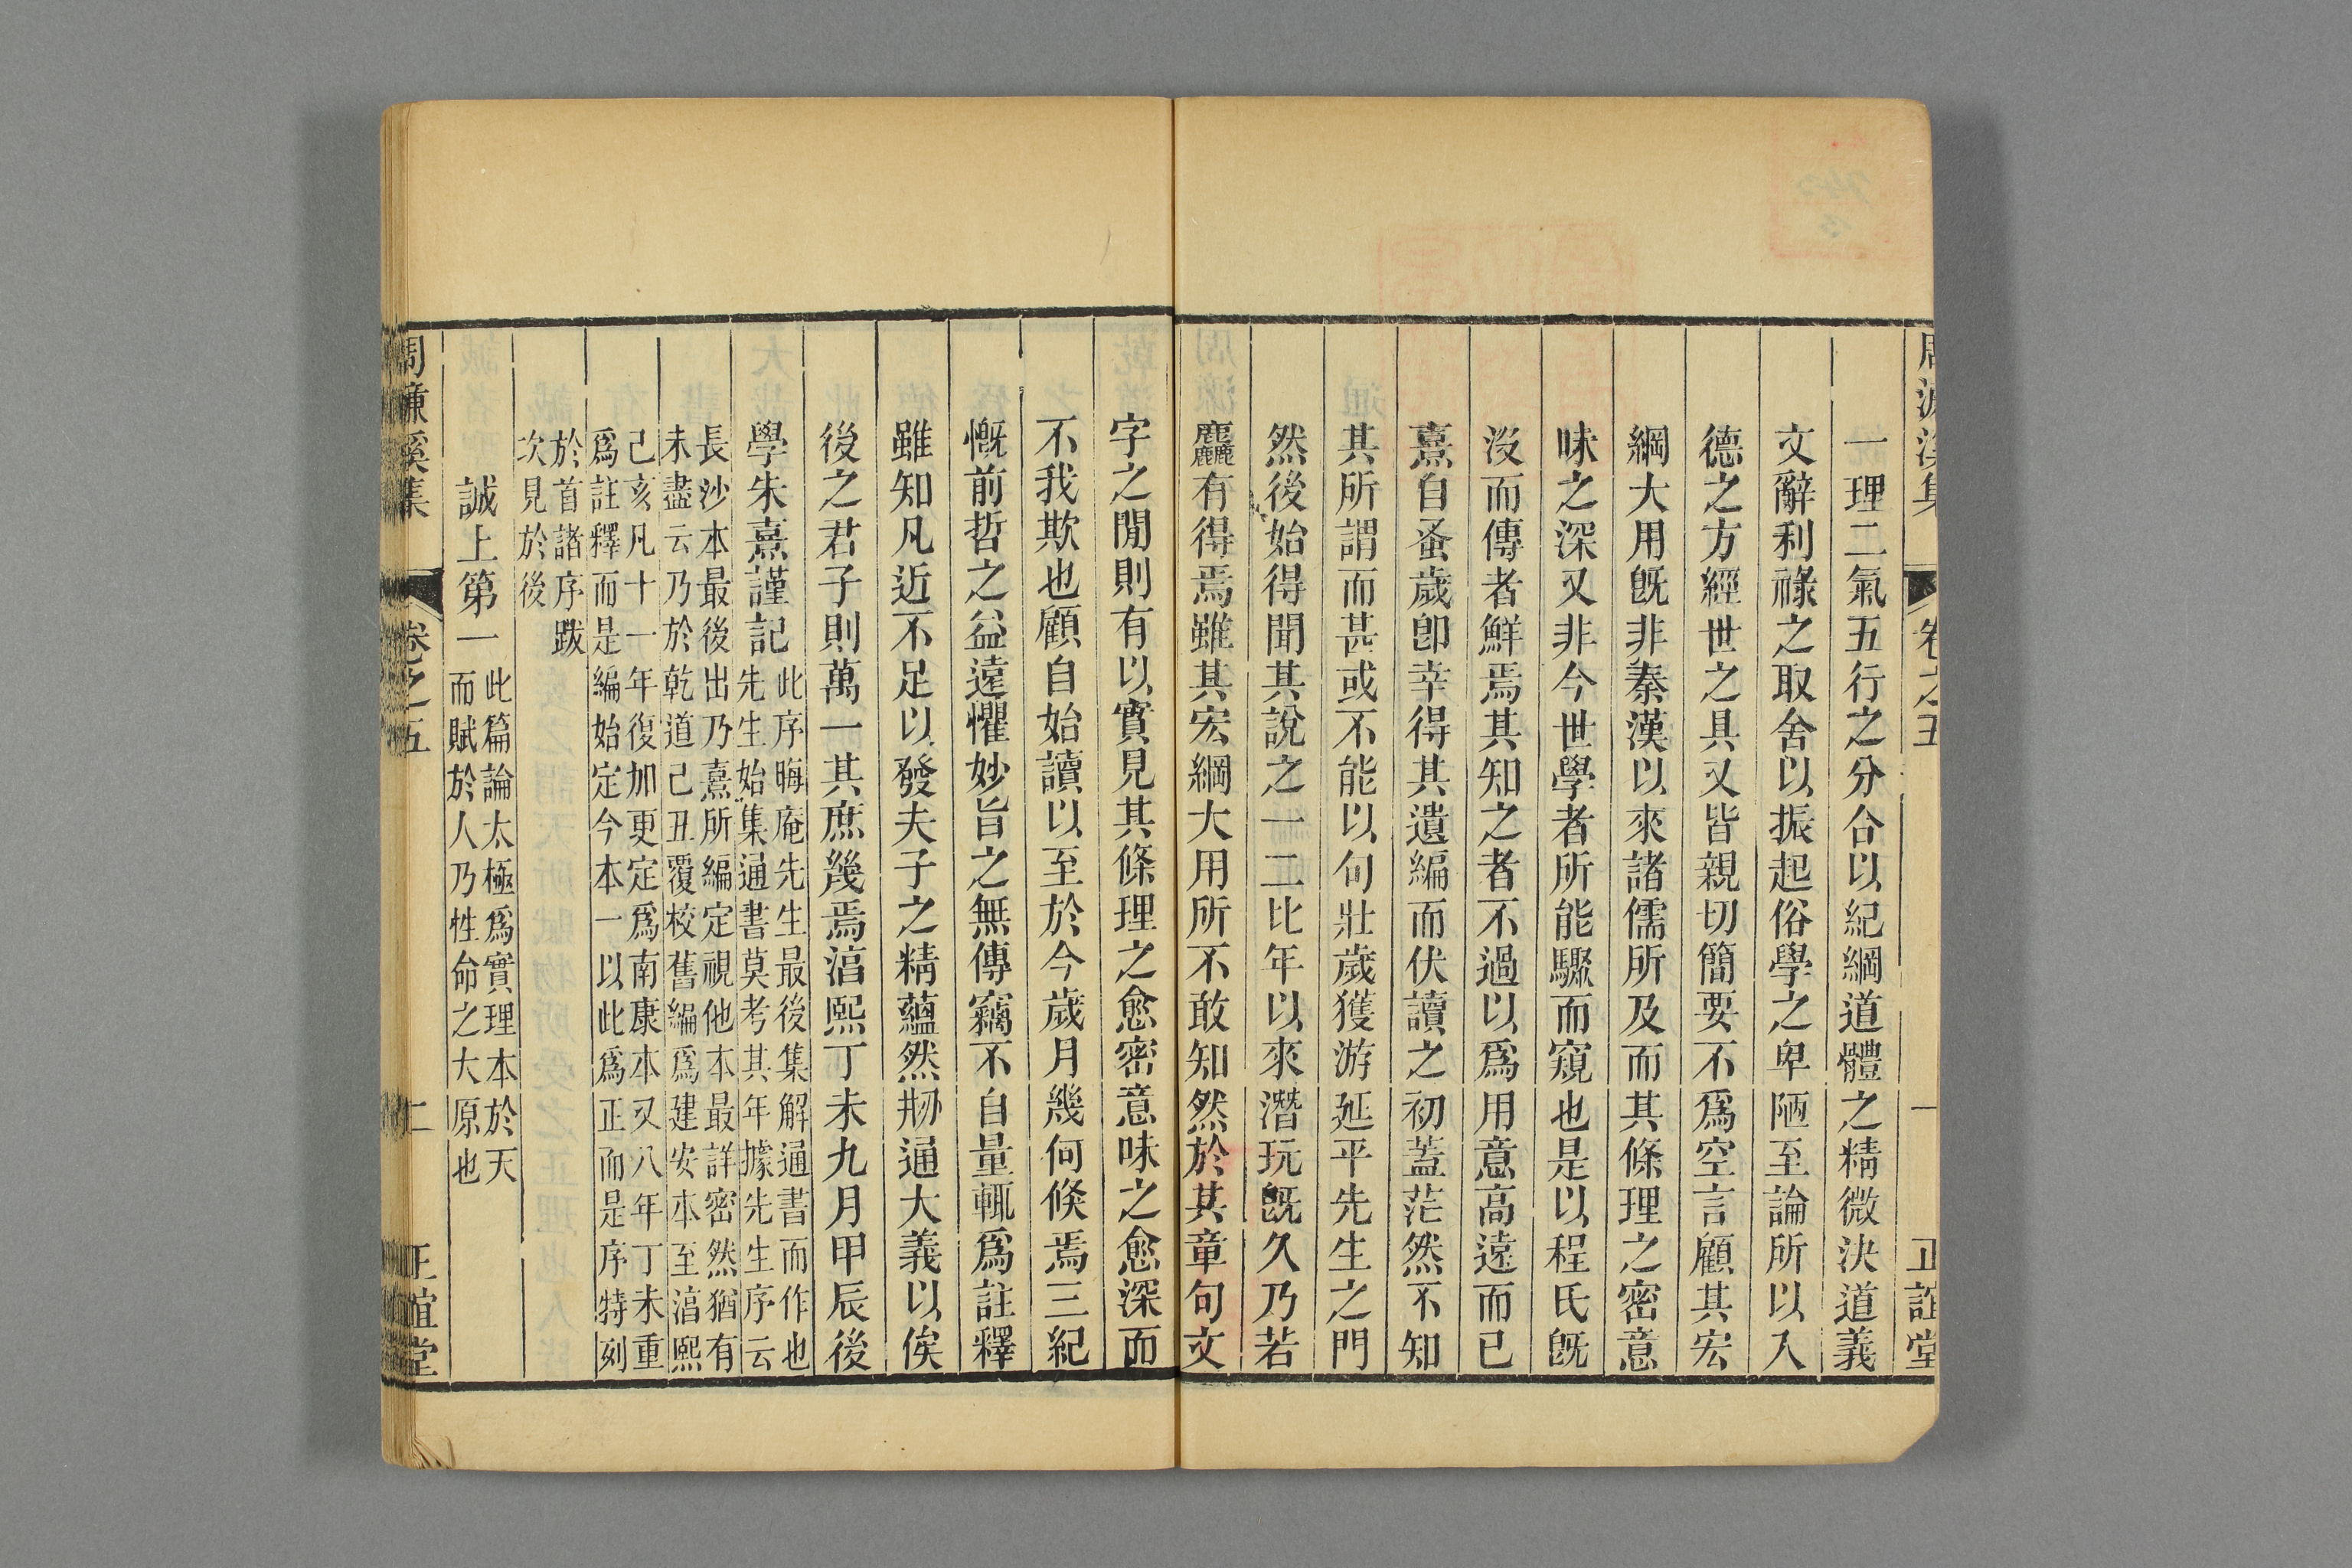 周濂溪集 卷之五 一 正誼堂
一理二氣五行之分合以紀綱道體之精微決道義
文辭利祿之取舍以振起俗學之卑陋至論所以入
德之方經世之具又皆親切簡要不爲空言顧其宏
綱大用旣非秦漢以來諸儒所及而其條理之密意
味之深又非今世學者所能驟而窺也是以程氏旣
沒而傳者鮮焉其知之者不過以爲用意高遠而已
熹自蚤歲卽幸得其遺編而伏讀之初蓋茫然不知
其所謂而甚或不能以句壯歲獲游延平先生之門
然後始得聞其說之一二比年以來潛玩旣久乃若
麤有得焉雖其宏綱大用所不敢知然於其章句文
字之閒則有以實見其條理之愈密意味之愈深而
不我欺也顧自始讀以至於今歲月幾何倐焉三紀
慨前哲之益遠懼妙旨之無傳竊不自量輒爲註釋
雖知凡近不足以發夫子之精蘊然刱通大義以俟
後之君子則萬一其庶幾焉淳熙丁未九月甲辰後
學朱熹謹記
此序晦庵先生最後集解通書而作也
先生始集通書莫考其年據先生序云
長沙本最後出乃熹所編定視他本最詳密然猶有
未盡云乃於乾道己丑覆校舊編爲建安本至淳熙
己亥凡十一年復加更定爲南康本又八年丁未重
爲註釋而是編始定今本一以此爲正而是序特刻
於首諸序跋
次見於後
誠上第一
此篇論太極爲實理本於天
而賦於人乃性命之大原也
周濂溪集 卷之五 二 正誼堂